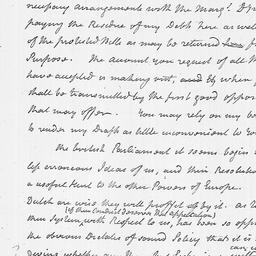 necessary arrangements with the Marqs.
paying the Residue of my Debts here as well
of the protested Bills as may be returned for
Purpose. The Account you request of all
have accepted is making out, and when
shall be transmitted by the first good oppor
that may offer. You may rely on my
to render my Drafts as little inconvenient to
the British Parliament it seems begin
less erroneous Ideas of us, and their Resolution
a useful Hint to the other Powers of Europe.
Dutch are wise they will profit by it. as to
(if their Conduct deserves that appellation)
their System, with Respect to us, has been so
the obvious Dictates of sound Policy that it is